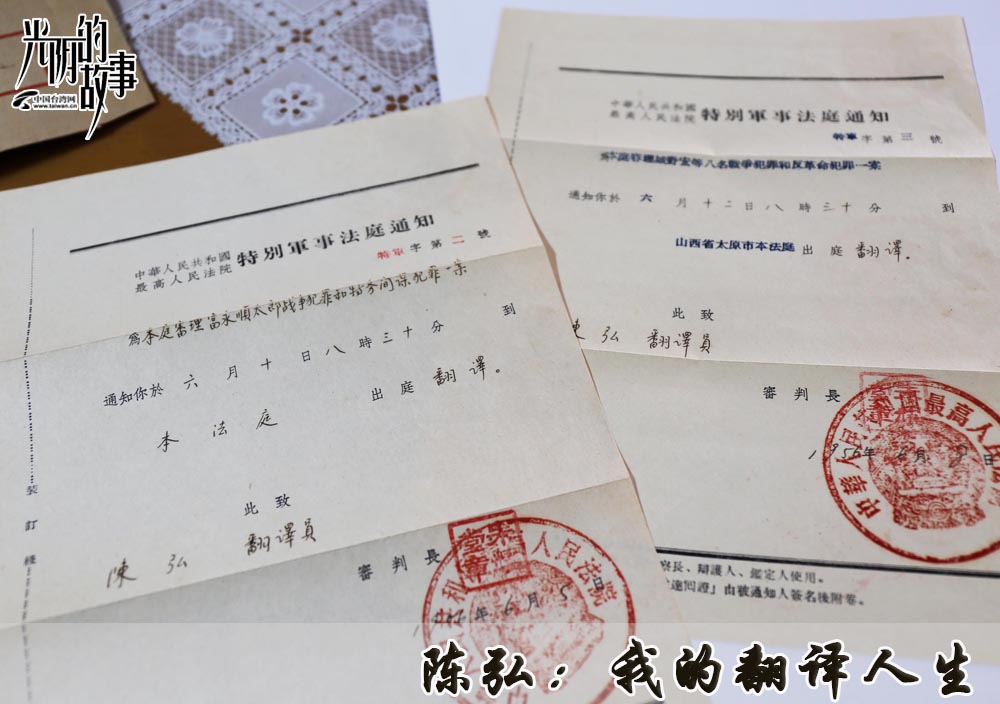 光阴的故事
中国台湾网
www.taiwan.cn
中華人民共和國
最高人民法院
特別軍事法庭通知
特軍字第二號
為本庭審理富永順太郎战争犯罪和特务间谍犯罪一案
通知你於 六 月 十 日 八 時 三 十 分 到
本法庭 出庭 翻譯。
此致
陳弘 翻譯員
審判長
1956年6月5日
人民法院
裝訂綫
中華人民共和國
最高人民法院
特別軍事法庭通知
特軍字第三號
為本庭審理城野宏等八名戰爭犯罪和反革命犯罪一案
通知你於 六 月 十 二 日 八 時 三 十 分 到
山西省太原市本法庭 出庭 翻譯。
此致
陳弘 翻譯員
審判長
1956年6月9日
中華人民 最高人民
察長、辯護人、鑑定人使用。
由被通知人簽名後附卷。
陈弘：我的翻译人生